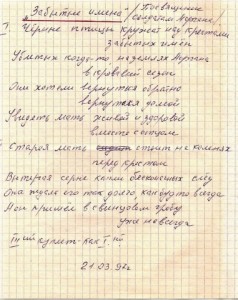 Забытые имена /Посвящение
солдатам Мужества/
I. Чёрные птицы кружат над крестами
забытых имён
Убитых когда-то на землях
в кровавый сезон
Они хотели вернуться обратно
вернуться домой
Увидеть мать живой и здоровой
вместе с отцом
Старая мать стоит на коленях
перед крестом
Вытирая серые капли бесконечных слёз
Она ждала его так долго, как будто всегда
Он пришёл в свинцовом гробу
уже навсегда
III-ий куплет - как I-ый
21.03.97г.